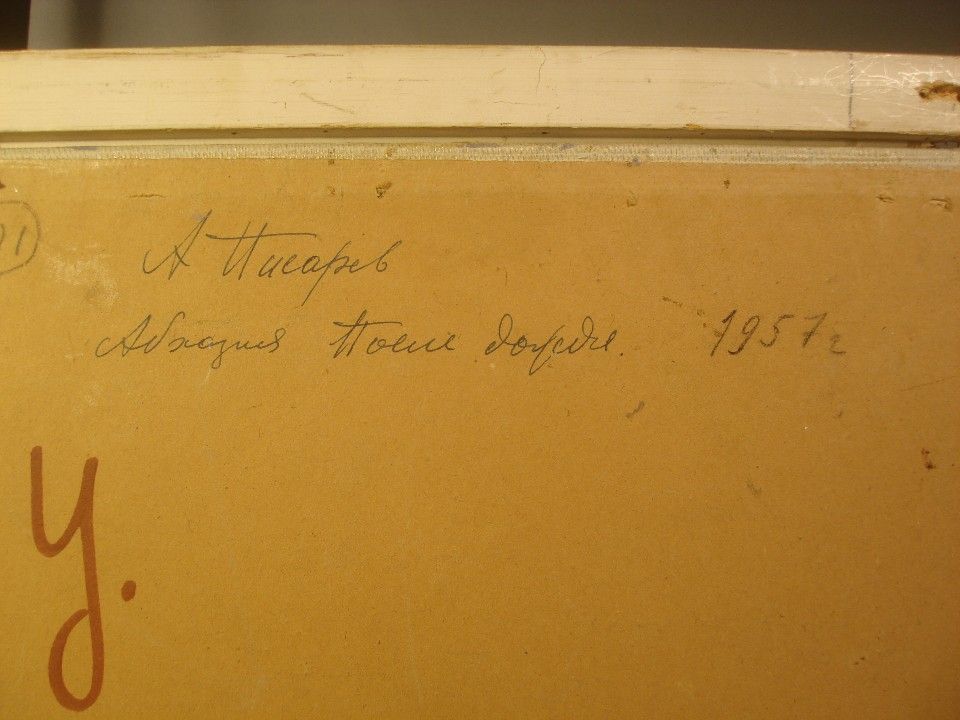 А Писарев
Абхазия После дождя. 1957 г
У.